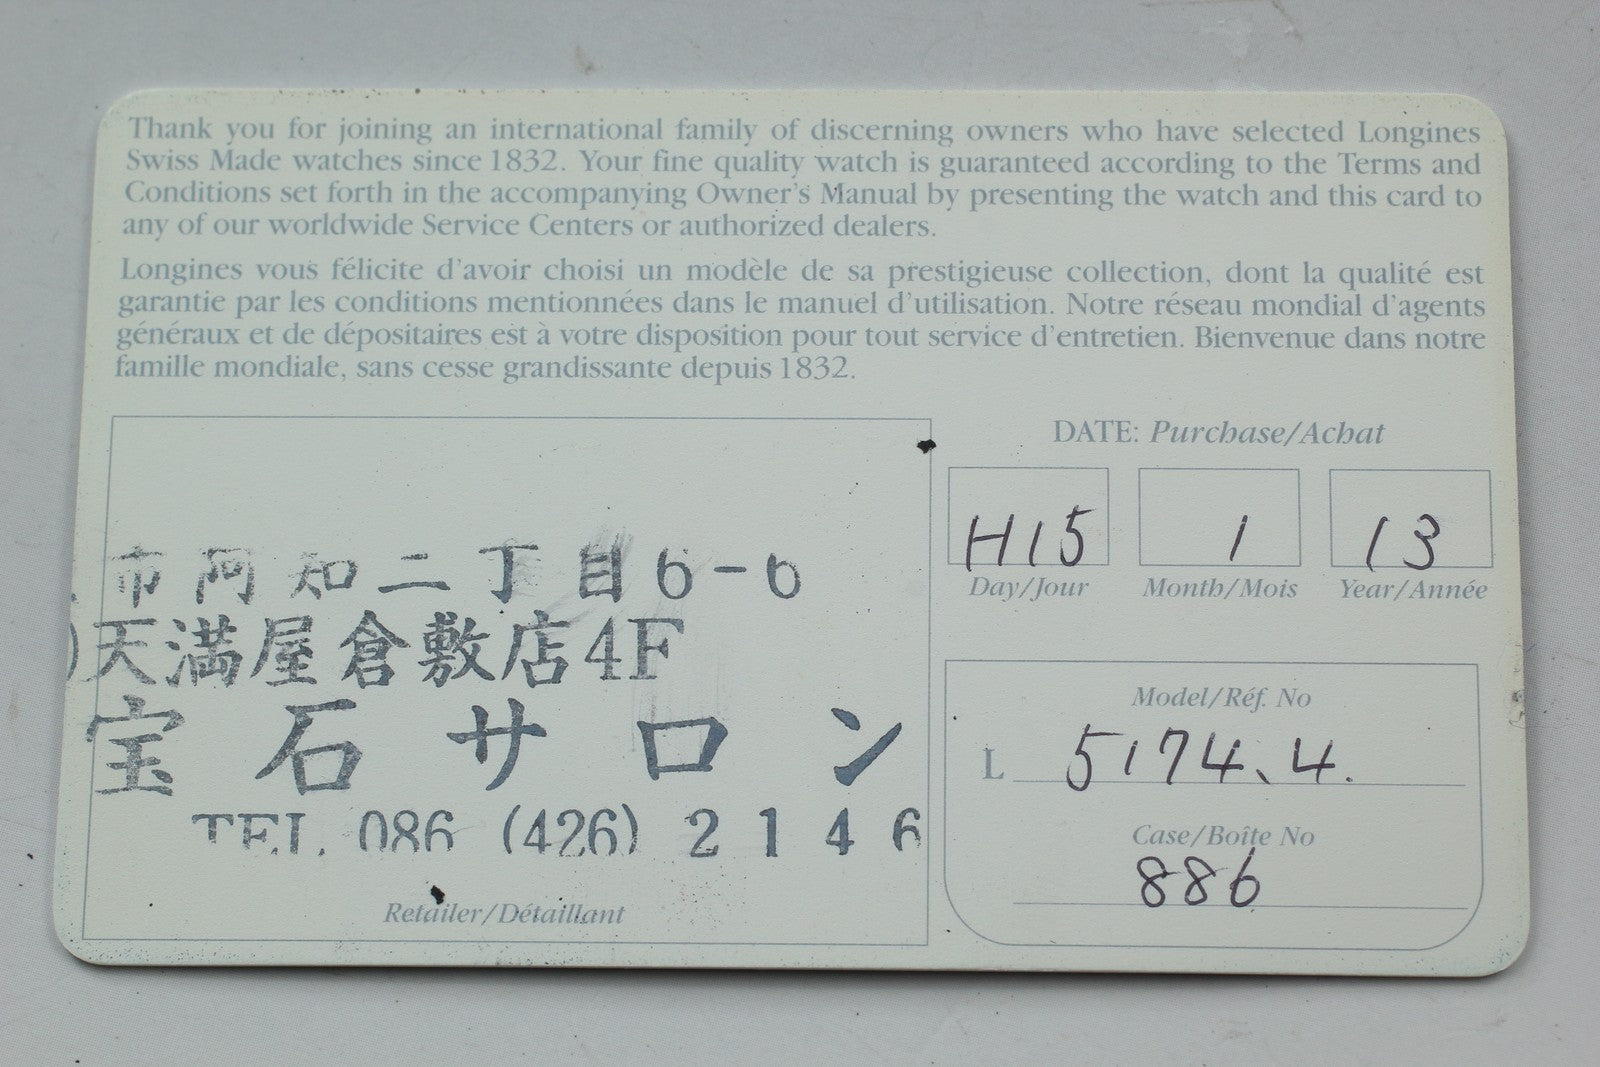 Thank you for joining an international family of discerning owners who have selected Longines
Swiss Made watches since 1832. Your fine quality watch is guaranteed according to the Terms and
Conditions set forth in the accompanying Owner's Manual by presenting the watch and this card to
any of our worldwide Service Centers or authorized dealers.
Longines vous félicite d'avoir choisi un modèle de sa prestigieuse collection, dont la qualité est
garantie par les conditions mentionnées dans le manuel d'utilisation. Notre réseau mondial d'agents
généraux et de dépositaires est à votre disposition pour tout service d'entretien. Bienvenue dans notre
famille mondiale, sans cesse grandissante depuis 1832.
市阿知二丁目6-6
)天満屋倉敷店4F
宝石サロン
TEL 086 (426) 2146
Retailer/Détaillant
DATE: Purchase/Achat
H15 1 13
Day/Jour Month/Mois Year/Année
Model/Réf. No
L 5174.4.
Case/Boîte No
886